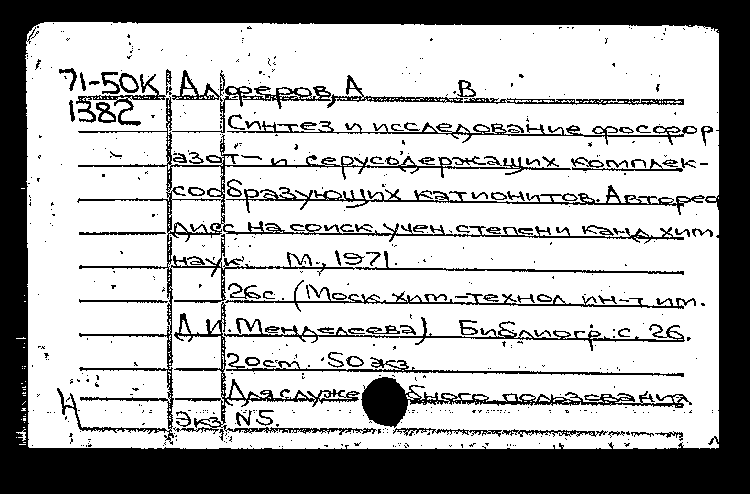 71-50К Алферов, А В
1382
Синтез и исследование фосфор-
азот- и серусодержащих комплек-
сообразующих катионитов. Автореф
дисс на соиск. учен. степени канд хим.
наук. М., 1971.
26с. (Моск. хим.-технол ин-т им.
Д. И. Менделеева). Библиогр.: с. 26.
20см. 50 экз.
Для служебного пользования
Экз N5.
Н